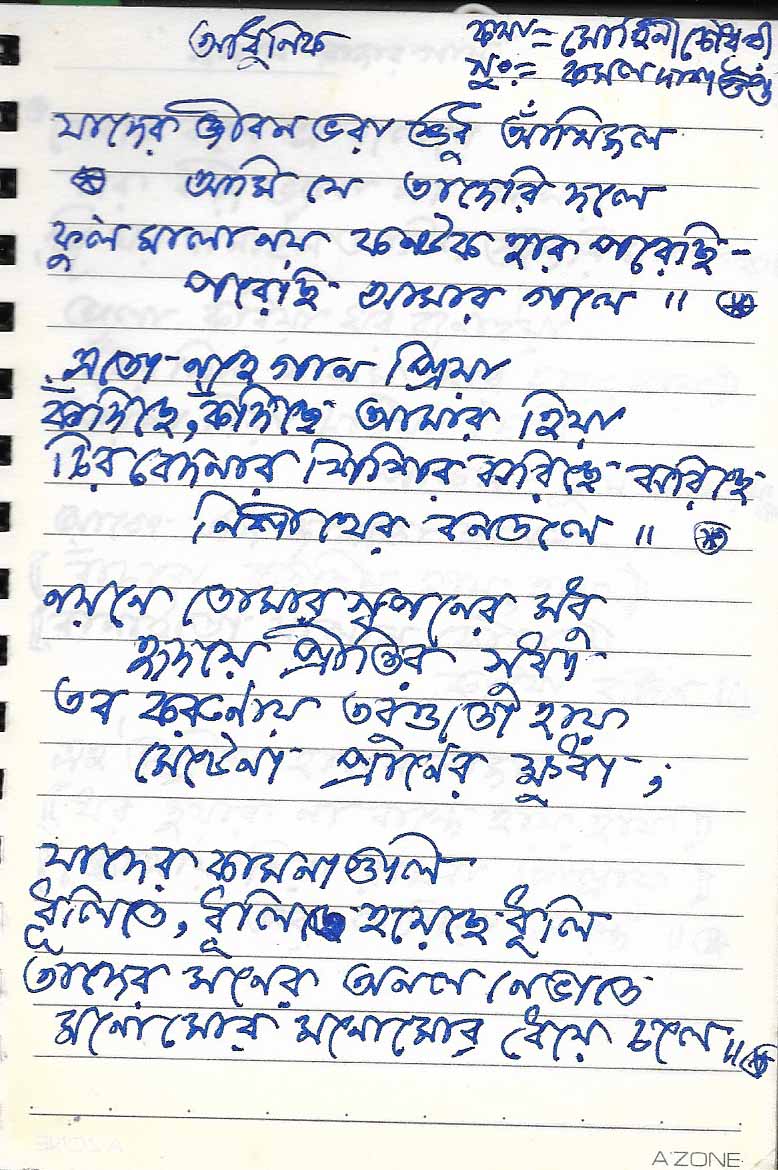 আধুনিক
কথা = মোহিনী চৌধুরী
সুর = কমল দাশগুপ্ত
যাদের জীবন ভরা শুধু আঁখিজল
আমি যে তাদেরি দলে
ফুল মালা নয় কন্টক হার পরেছি -
পরেছি আমার গলে ॥
এতো নহে গান প্রিয়া
কাঁদিছে, কাঁদিছে আমার হিয়া
চির বেদনার শিশির ঝরিছে ঝরিছে
নিশীথের বনতলে ॥
নয়নে তোমার স্বপনের মধু
হৃদয়ে প্রীতির সুধা
তব করুণায় তবুওতো হায়
মেটেনা প্রাণের ক্ষুধা ;
যাদের কামনাগুলি
ধূলিতে, ধূলিতে হয়েছে ধূলি
তাদের মনের অনল নেভাতে
মনোমোর মনোমোর ধেয়ে চলে ॥
A'ZONE